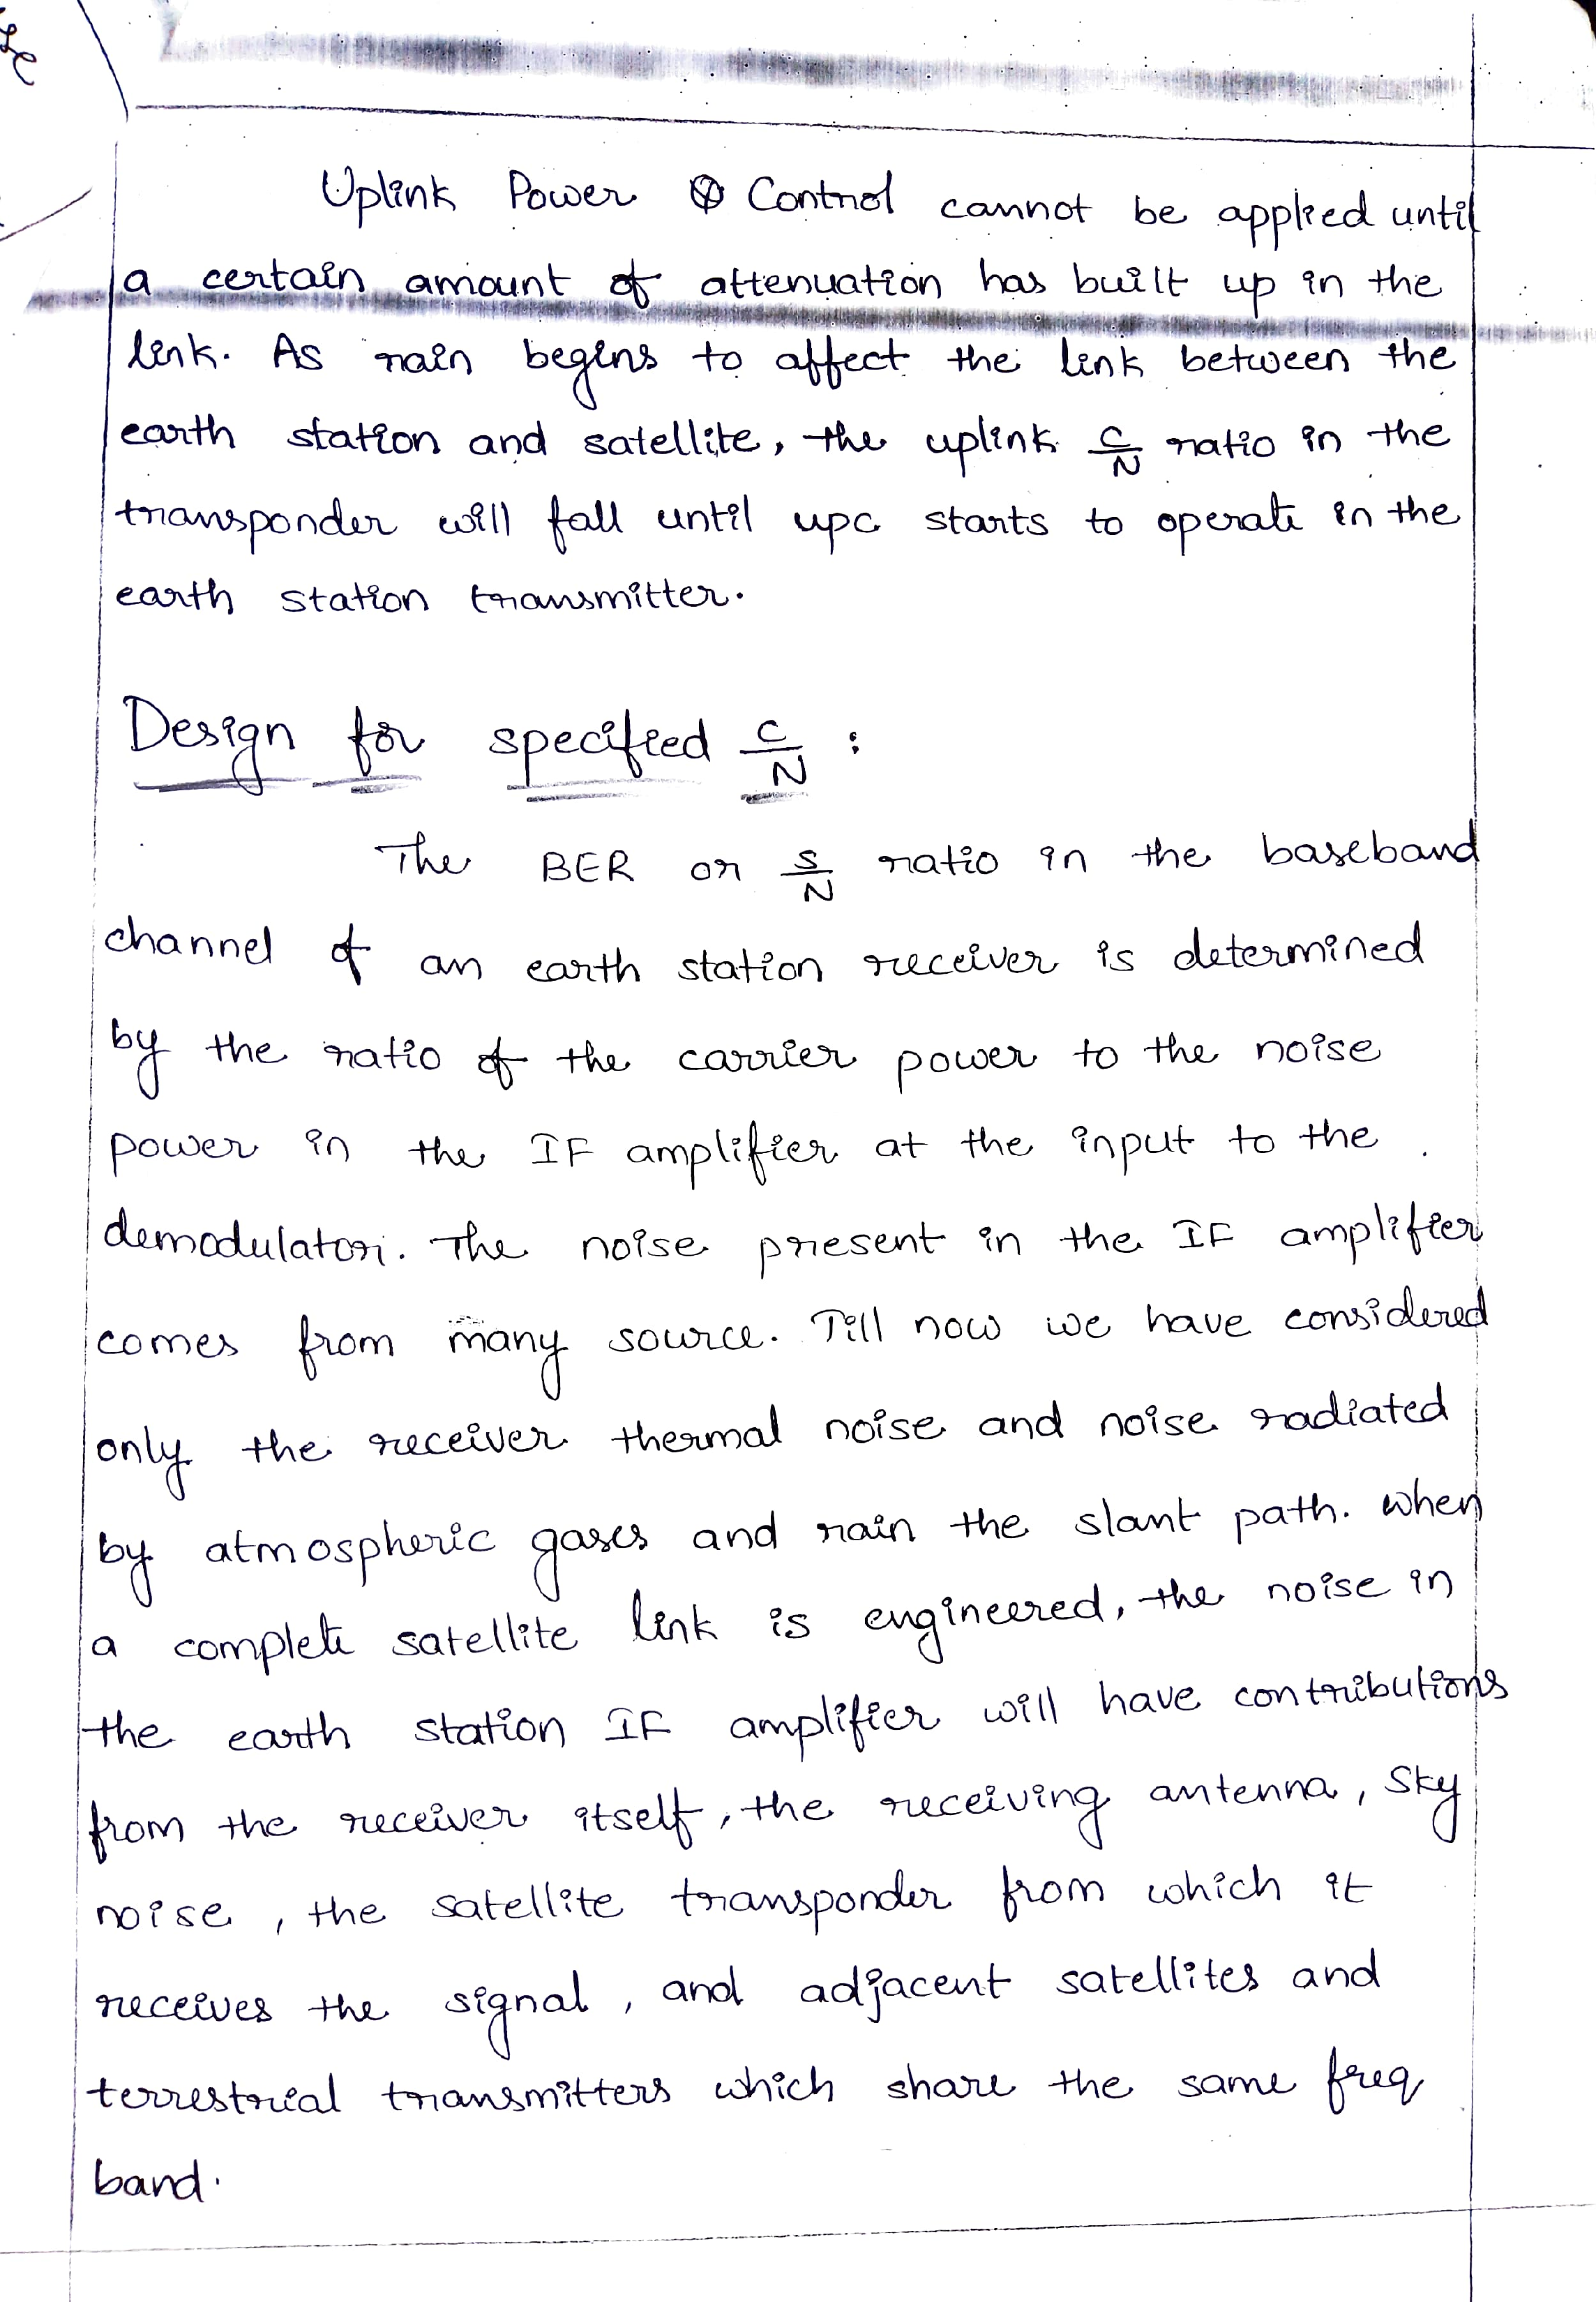 Uplink Power Control cannot be applied until
a certain amount of attenuation has built up in the
link. As rain begins to affect the link between the
earth station and satellite, the uplink C/N ratio in the
transponder will fall until upc starts to operate in the
earth station transmitter.
Design for specified C/N :
The BER or S/N ratio in the baseband
channel of an earth station receiver is determined
by the ratio of the carrier power to the noise
power in the IF amplifier at the input to the
demodulator. The noise present in the IF amplifier
comes from many source. Till now we have considered
only the receiver thermal noise and noise radiated
by atmospheric gases and rain the slant path. when
a complete satellite link is engineered, the noise in
the earth station IF amplifier will have contributions
from the receiver itself, the receiving antenna, sky
noise, the satellite transponder from which it
receives the signal, and adjacent satellites and
terrestrial transmitters which share the same freq
band.